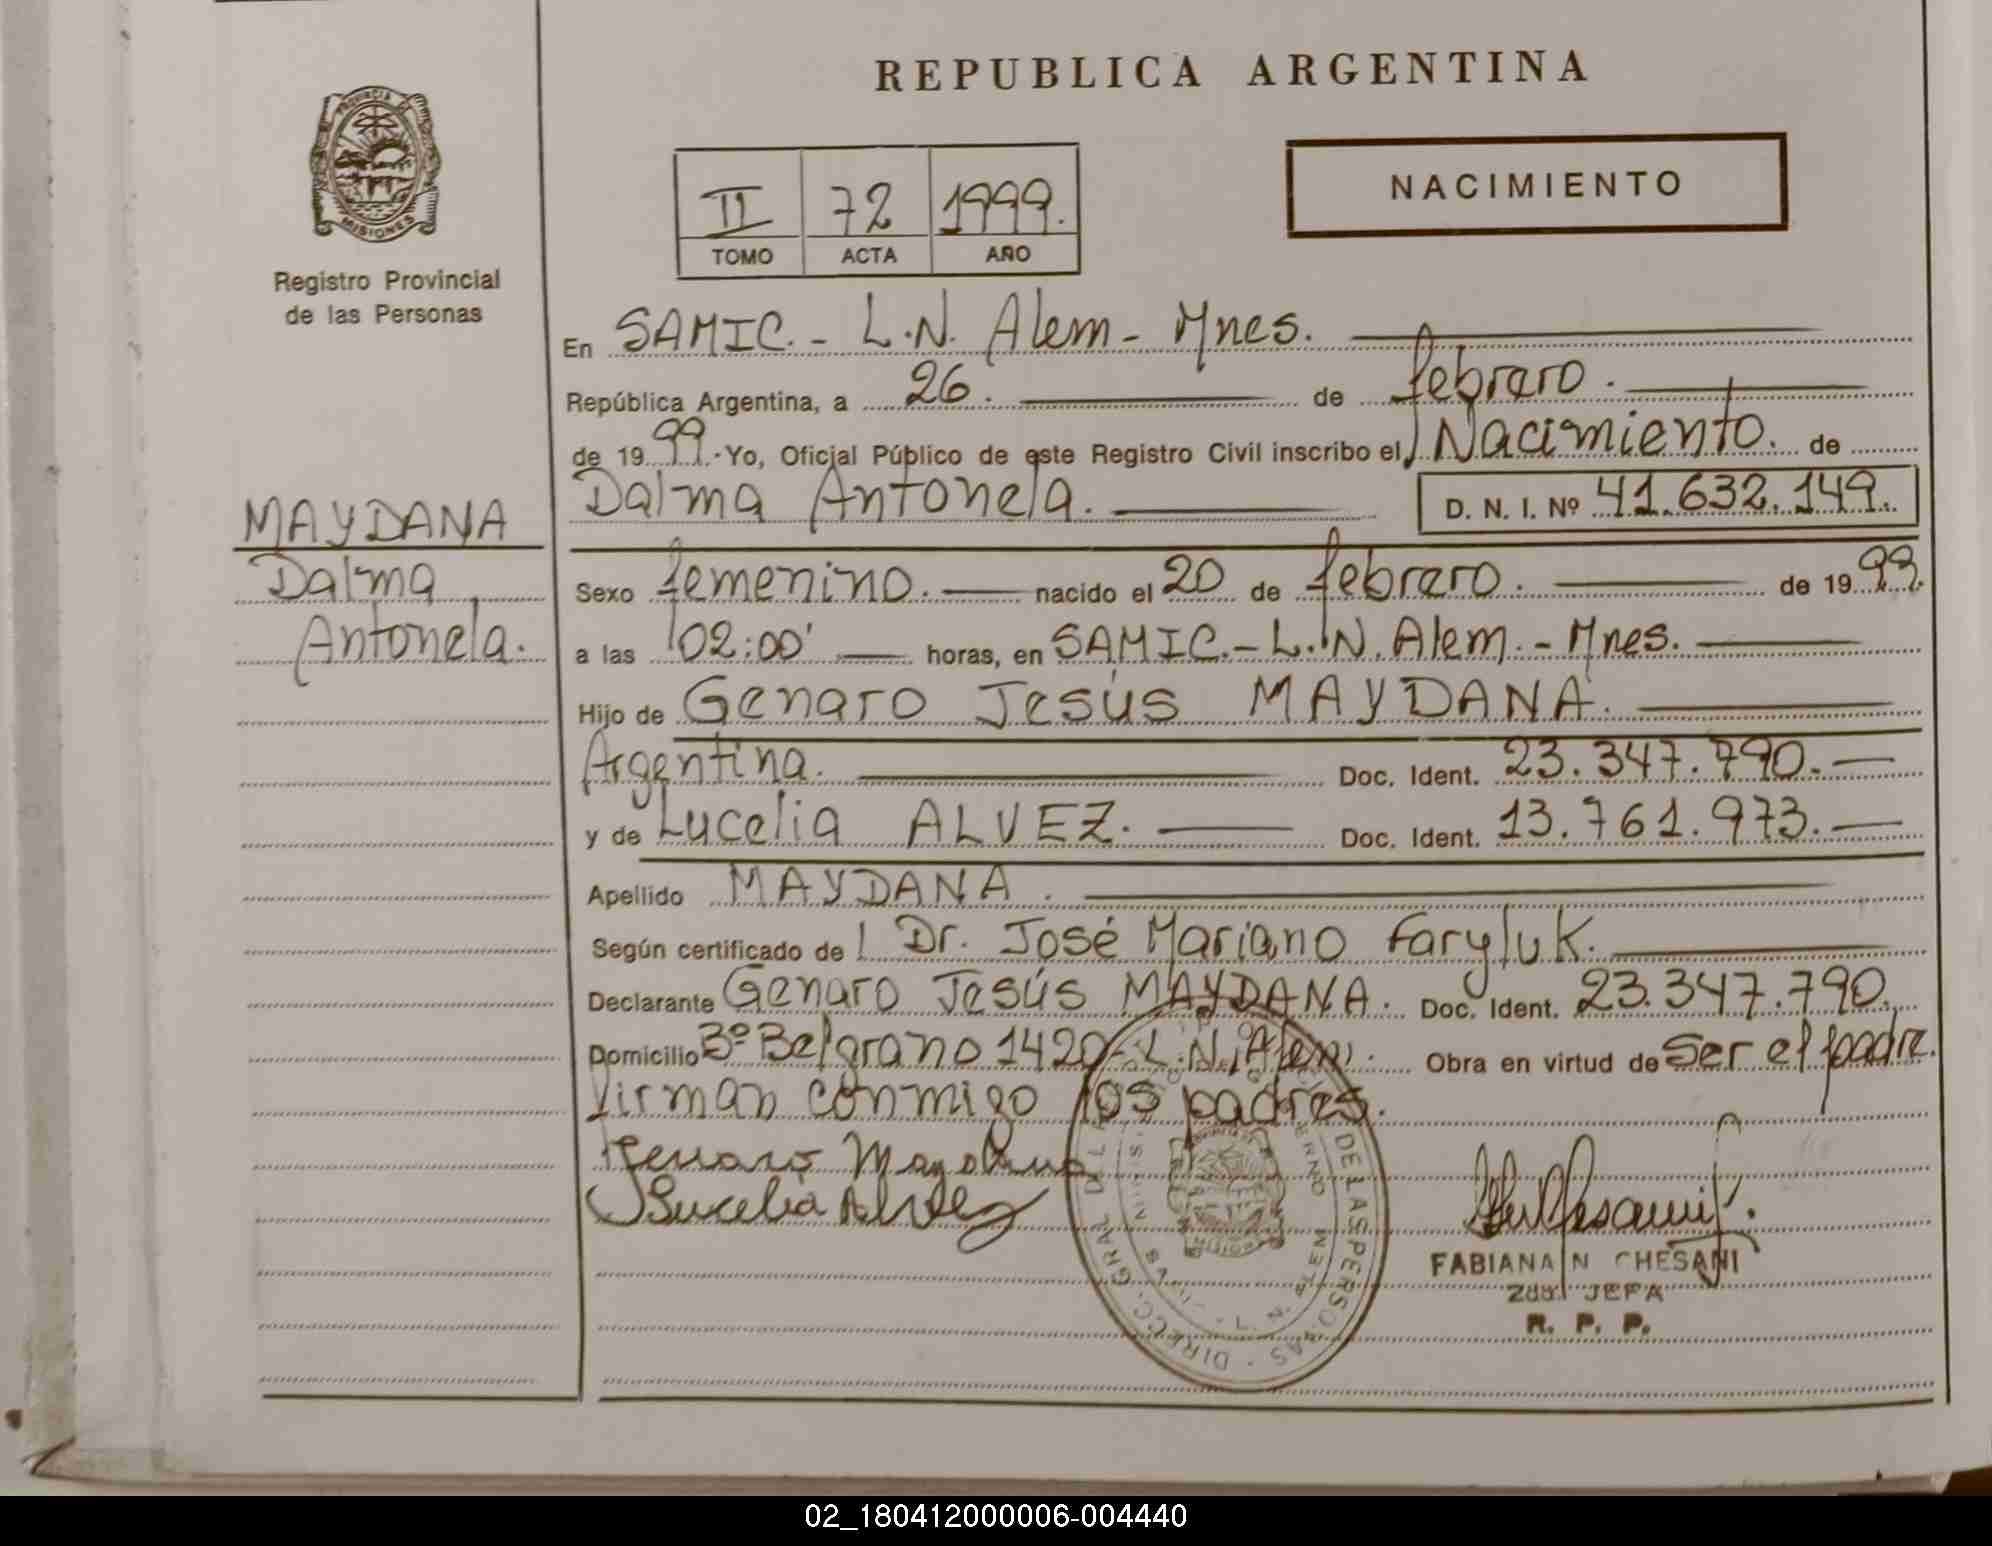 REPUBLICA ARGENTINA
PROVINCIA DE
MISIONES
Registro Provincial
de las Personas
NACIMIENTO
II 72 1999.
TOMO ACTA AÑO
En SAMIC.- L.N. Alem - Mnes.
República Argentina, a 26. de febrero.
de 1999.-Yo, Oficial Público de este Registro Civil inscribo el Nacimiento. de
Dalma Antonela. D. N. I. Nº 41.632.149.
MAYDANA
Dalma
Antonela.
Sexo femenino. nacido el 20 de febrero. de 1999.
a las 02:00' horas, en SAMIC.-L.N. Alem.- Mnes.
Hijo de Genaro Jesús MAYDANA.
Argentina. Doc. Ident. 23.347.790.
y de Lucelia ALVEZ. Doc. Ident. 13.761.973.
Apellido MAYDANA.
Según certificado de Dr. José Mariano Faryluk.
Declarante Genaro Jesús MAYDANA. Doc. Ident. 23.347.790.
Domicilio Bº Belgrano 1420- L.N. Alem. Obra en virtud de Ser el padre.
Firman conmigo los padres.
Genaro Maydana
Lucelia Alvez
DIREC. GRAL DEL DE LAS PERSONAS
FABIANA N CHESANI
2da. JEFA
R. P. P.
02_180412000006-004440